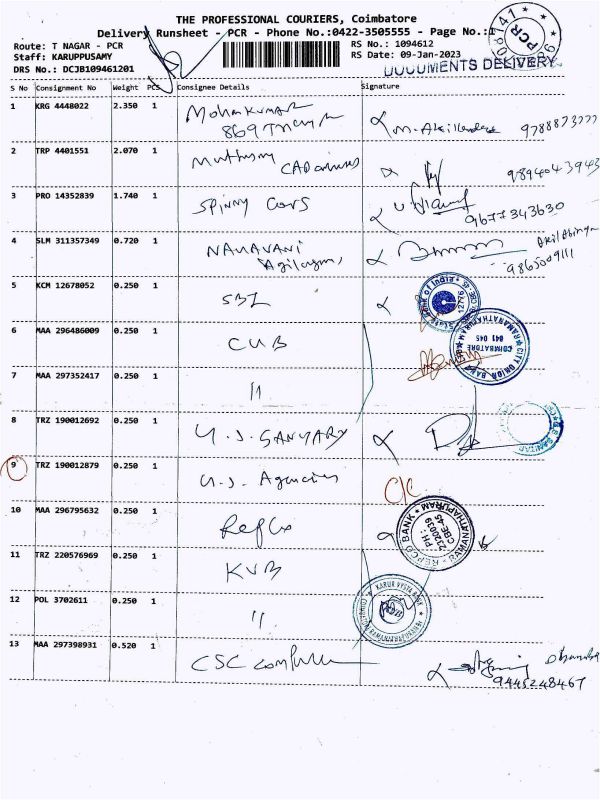 THE PROFESSIONAL COURIERS, Coimbatore
Delivery Runsheet - PCR - Phone No.:0422-3505555 - Page No.:1
Route: T NAGAR - PCR RS No.: 1094612
Staff: KARUPPUSAMY RS Date: 09-Jan-2023
DRS No.: DCJB109461201
DOCUMENTS DELIVERY
PCR
S No Consignment No Weight PCS Consignee Details Signature
1 KRG 4448022 2.350 1 Mohan Kumar
869
2 TRP 4401551 2.070 1
9894043943
3 PRO 14352839 1.740 1 Spinny Cars
9677343630
4 SLM 311357349 0.720 1 NAVAVANI
9865009111
5 KCM 12678052 0.250 1 SBI
State Bank of India
12776
6 MAA 296486009 0.250 1 CUB
CITY UNION BANK
RAMANATHAPURAM
COIMBATORE
641 045
7 MAA 297352417 0.250 1 11
8 TRZ 190012692 0.250 1 U.S. SANITARY
9 TRZ 190012879 0.250 1 U.S. Agencies C/C
10 MAA 296795632 0.250 1 Repco
REPCO BANK
RAMANATHAPURAM
PH: 2320039
CBE-45
11 TRZ 220576969 0.250 1 KVB
12 POL 3702611 0.250 1 11
KARUR VYSYA BANK
13 MAA 297398931 0.520 1 CSC Computer
9445248467